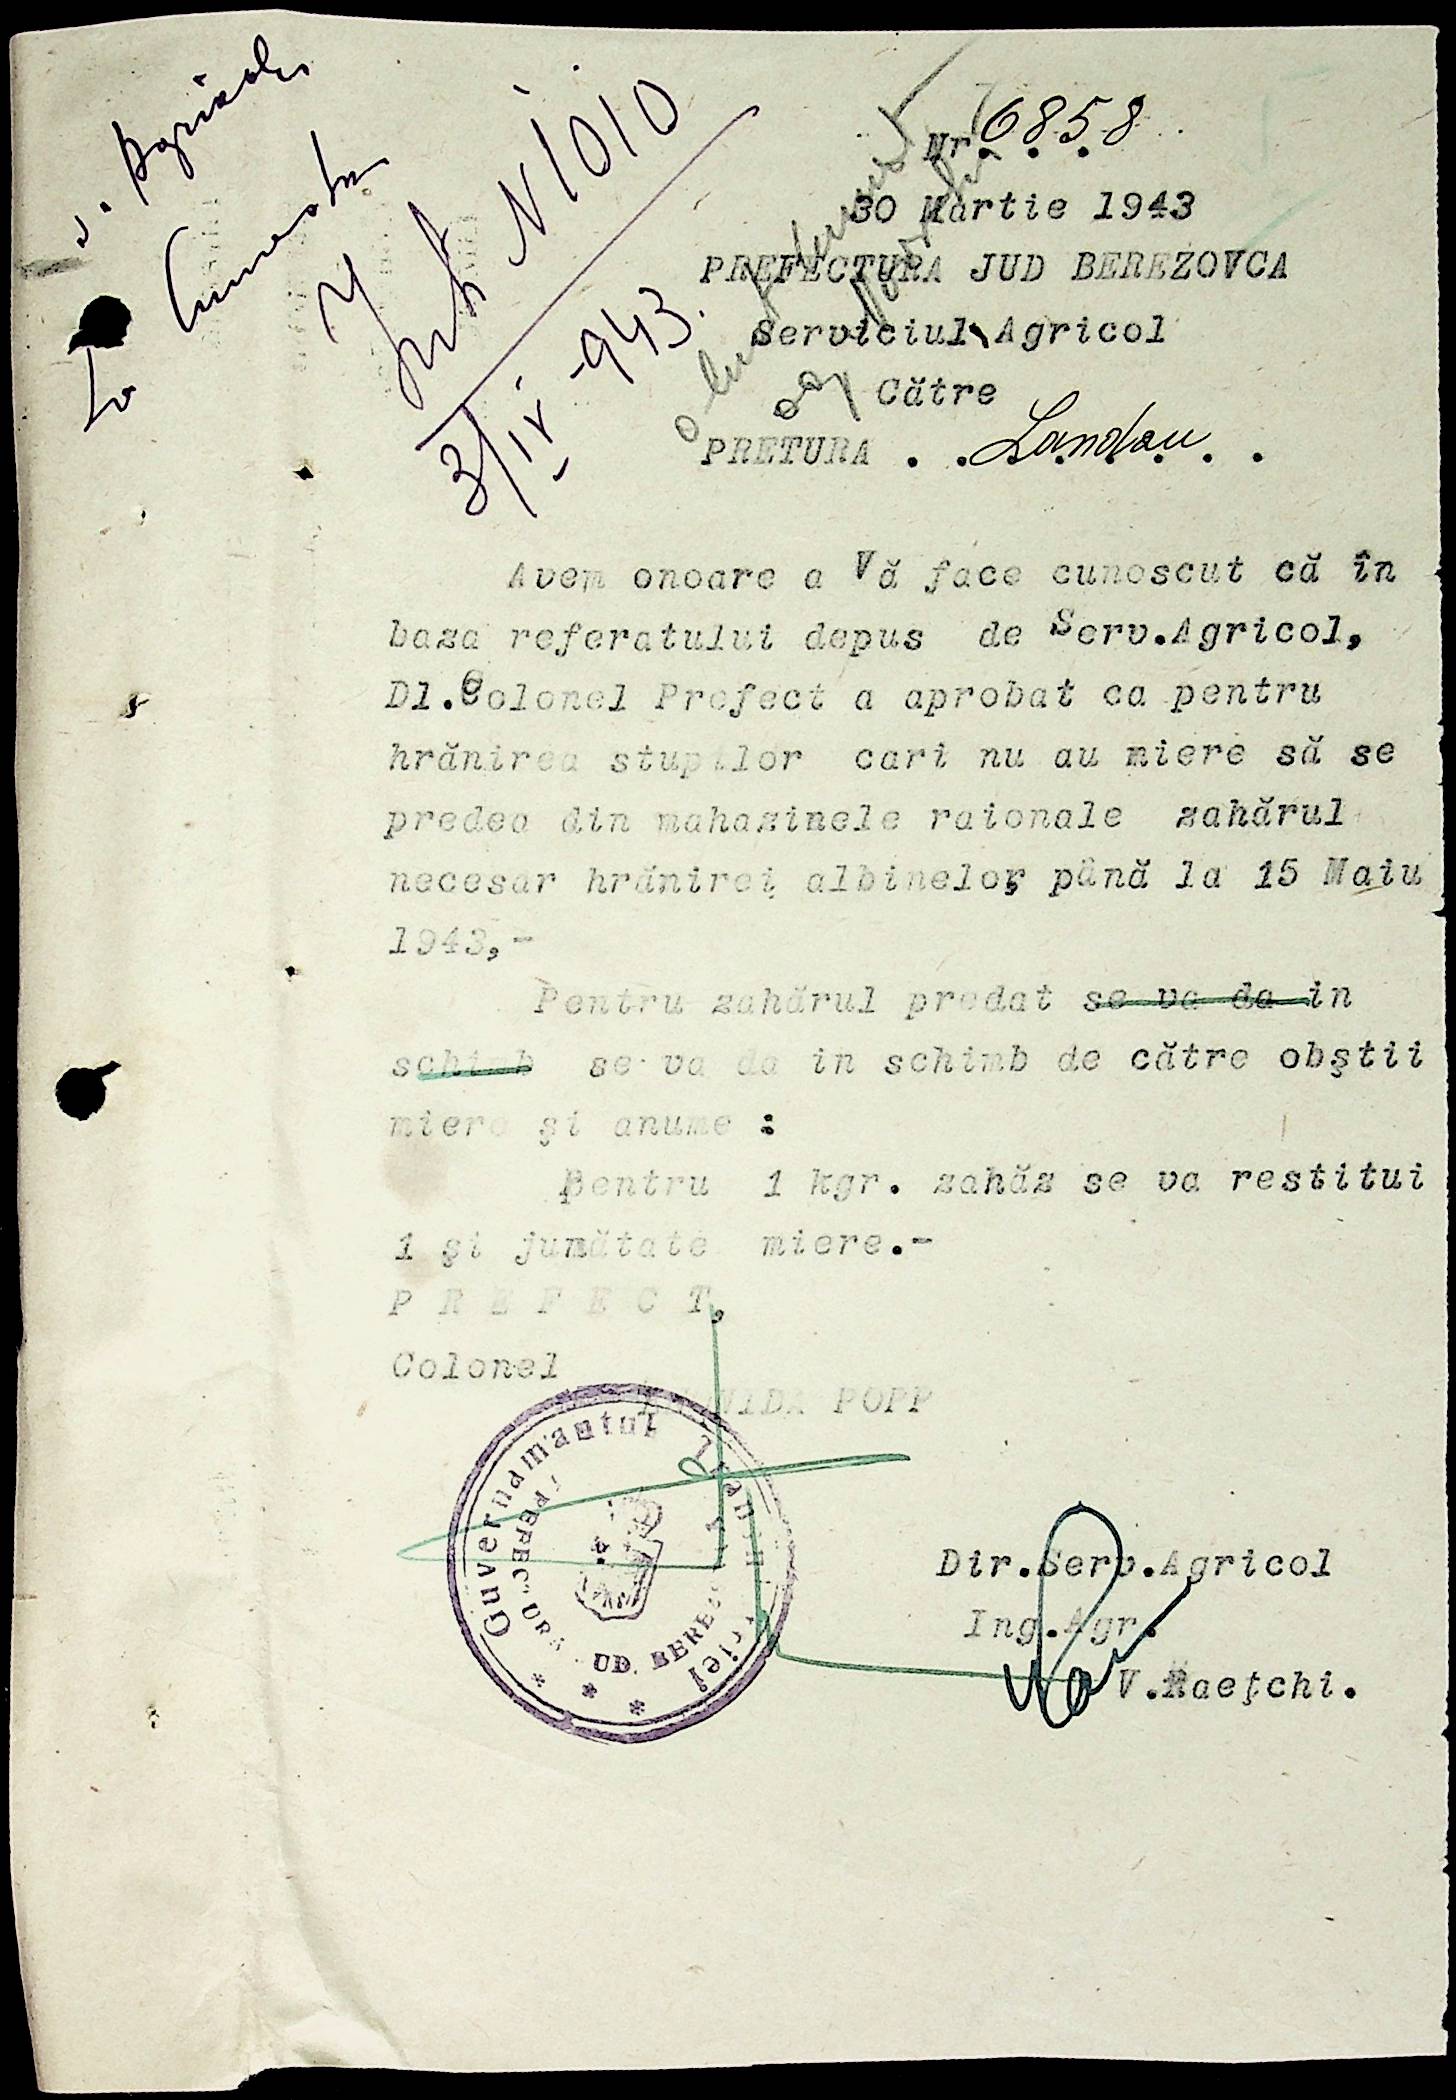 s. Agricol
La
Nr. 6858
N 1010
3/IV - 943.
30 Martie 1943
PREFECTURA JUD BEREZOVCA
Serviciul Agricol
Către
PRETURA . . Landau . .
Avem onoare a Vă face cunoscut că în
baza referatului depus de Serv.Agricol,
Dl.Colonel Prefect a aprobat ca pentru
hrănirea stupilor cari nu au miere să se
predea din mahazinele raionale zahărul
necesar hrănirei albinelor până la 15 Maiu
1943,-
Pentru zahărul predat se va da in
schimb se va da in schimb de către obştii
miere şi anume :
Pentru 1 kgr. zahăz se va restitui
1 şi jumătate miere.-
P R E F E C T,
Colonel
POPP
Guvernamantul
PREFECTURA JUD. BEREZ
Dir.Serv.Agricol
Ing.Agr.
V.Raeţchi.